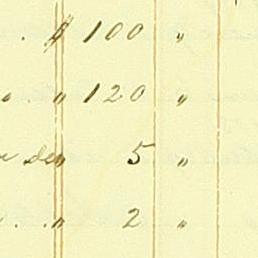 . $ 100 "
. " 120 "
de " 5 "
. . " 2 "